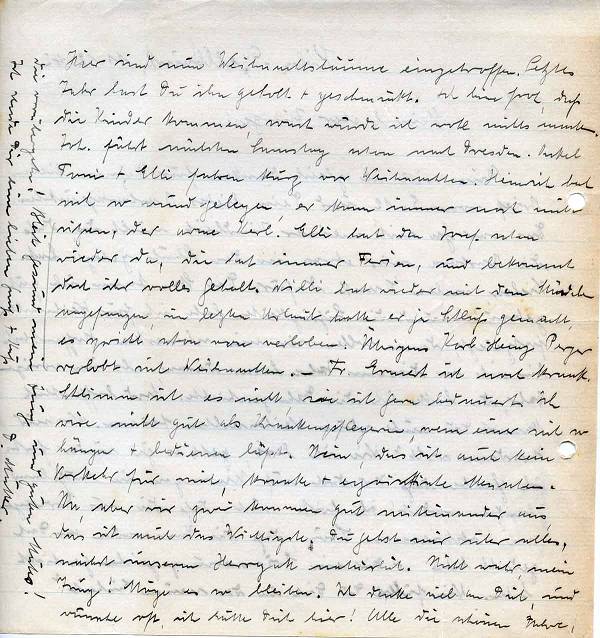 Hier sind nun Weihnachtsbäume eingetroffen. Letztes
Jahr hast Du ihn geholt + geschmückt. Ich bin froh, daß
die Kinder kommen, sonst würde ich wohl nichts machen.
Joh. fährt nächsten Samstag schon nach Dresden. Onkel
Toni + Elli fahren kurz vor Weihnachten. Heinrich hat
sich so wund gelegen, er kann immer noch nicht
sitzen, der arme Kerl. Elli hat den Josef schon
wieder da, die hat immer Ferien, und bekommt
doch ihr volles Gehalt. Willi hat wieder mit dem Mädchen
angefangen, im letzten Urlaub hatte er ja Schluß gemacht,
es spricht schon von verloben. Übrigens Karl-Heinz
verlobt sich Weihnachten. – Fr. Ernest ist noch krank.
Schlimm ist es nicht, sie ist gern bedauert. Ich
wäre nicht gut als Krankenpflegerin, wenn einer sich so
hängen + bedienen läßt. Nein, das ist auch kein
Verkehr für mich, kranke + egoistische Menschen.
Na, aber wir zwei kommen gut miteinander aus,
das ist auch das Wichtigste. Du gehst mir über alles,
nächst unserem Herrgott natürlich. Nicht wahr, mein
Jung! Möge es so bleiben. Ich denke viel an Dich, und
wünschte oft, ich hätte Dich hier! Alle die schönen Jahre,
die vorübergehen! Bleib gesund mein Jung und guten Mutes!
Ich sende Dir einen lieben Gruß + Kuß
D. Mutter.